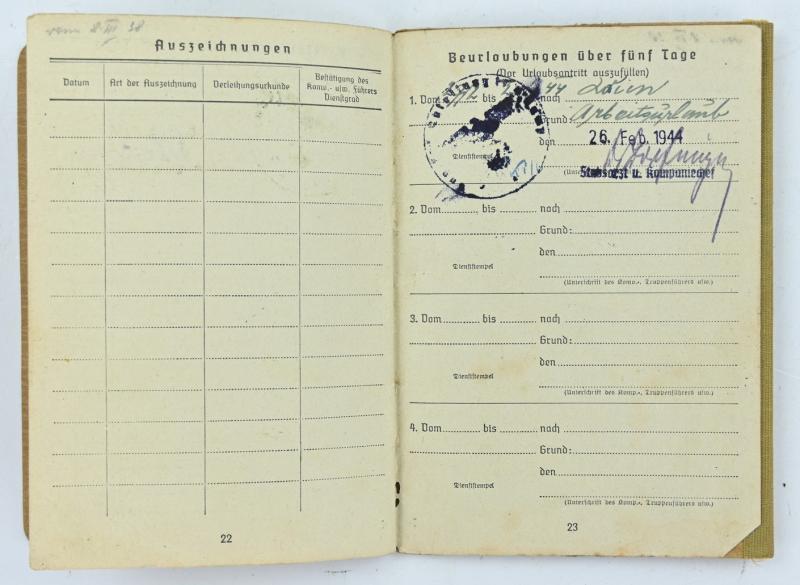 Auszeichnungen
Datum
Art der Auszeichnung
Verleihungsurkunde
Bestätigung des
Komp.- usw. Führers
Dienstgrad
22
Beurlaubungen über fünf Tage
(Vor Urlaubsantritt auszufüllen)
1. Vom bis 44 nach
Grund: Arbeitsurlaub
26. Feb. 1944
Dienststempel
Stabsarzt u. Kompaniechef
2. Vom bis nach
Grund:
den
Dienststempel
(Unterschrift des Komp.-, Truppenführers usw.)
3. Vom bis nach
Grund:
den
Dienststempel
(Unterschrift des Komp.-, Truppenführers usw.)
4. Vom bis nach
Grund:
den
Dienststempel
(Unterschrift des Komp.-, Truppenführers usw.)
23